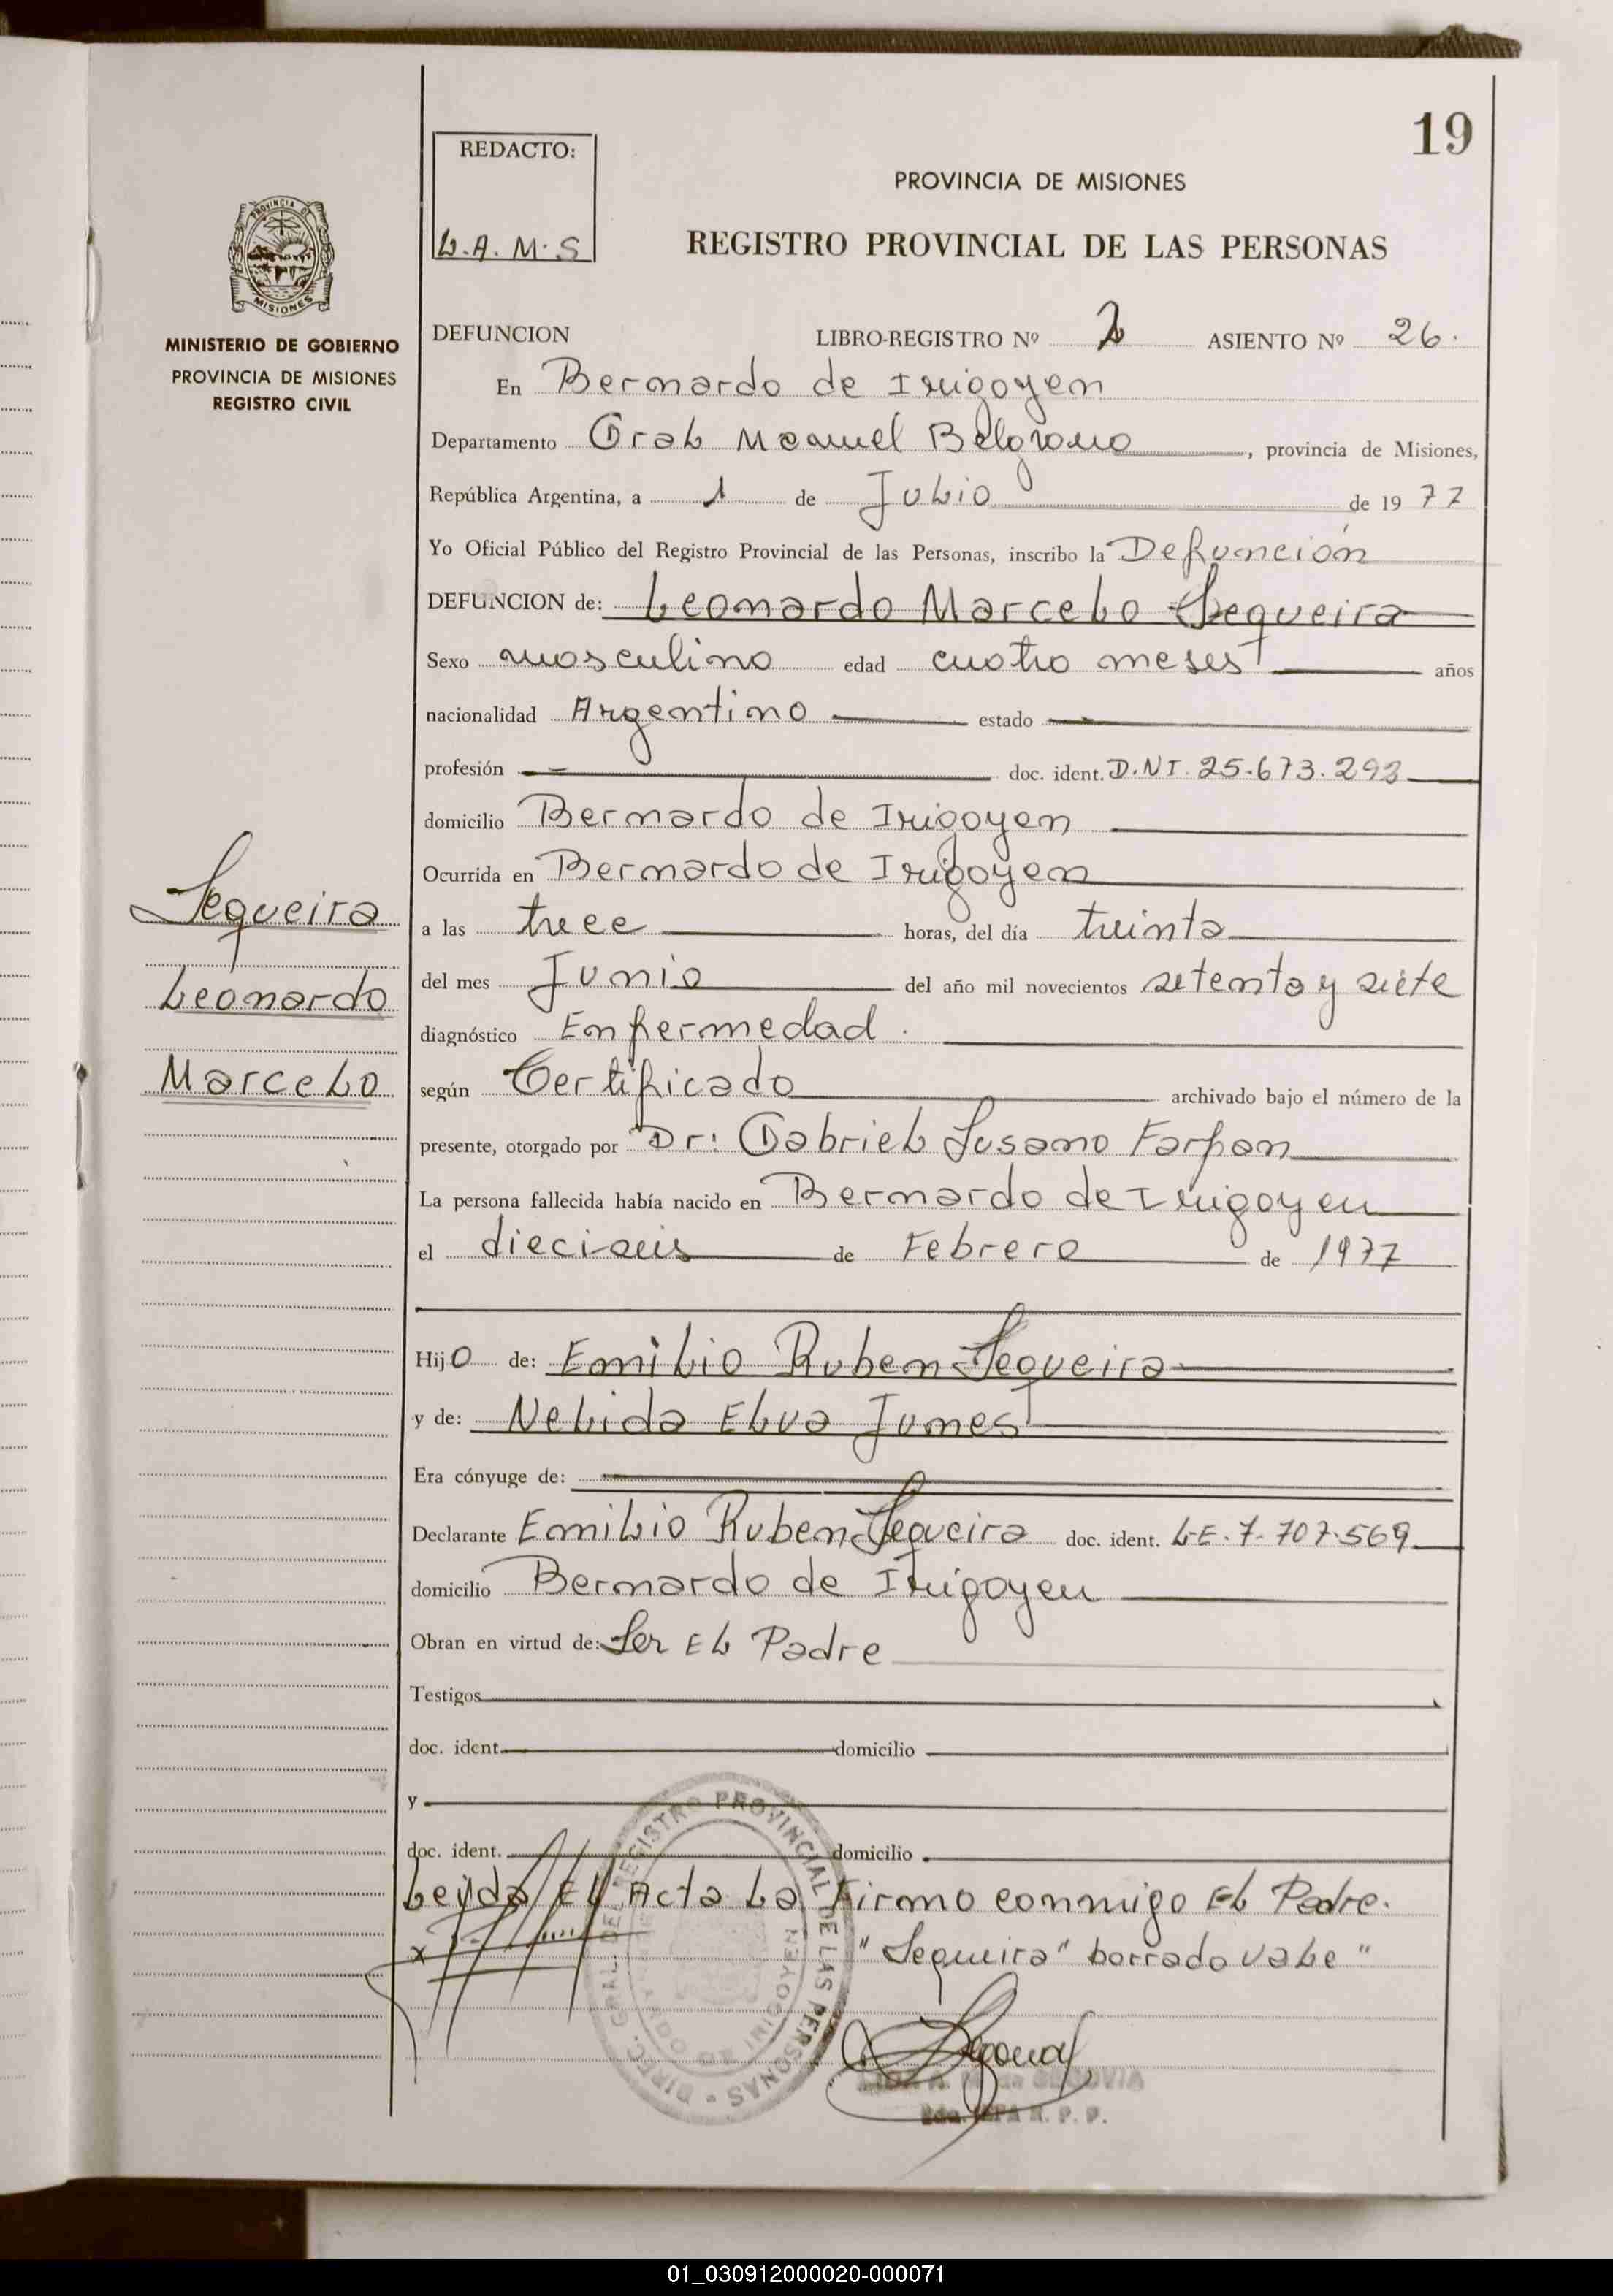 19
REDACTO:
L.A.M.S
PROVINCIA DE MISIONES
REGISTRO PROVINCIAL DE LAS PERSONAS
PROVINCIA DE
MISIONES
MINISTERIO DE GOBIERNO
PROVINCIA DE MISIONES
REGISTRO CIVIL
DEFUNCION LIBRO-REGISTRO Nº 2 ASIENTO Nº 26.
En Bernardo de Irigoyen
Departamento Gral Manuel Belgrano, provincia de Misiones,
República Argentina, a 1 de Julio de 1977
Yo Oficial Público del Registro Provincial de las Personas, inscribo la Defunción
DEFUNCION de: Leonardo Marcelo Sequeira
Sexo masculino edad cuatro meses años
nacionalidad Argentino estado
profesión doc. ident. D.NI. 25.673.293
domicilio Bernardo de Irigoyen
Ocurrida en Bernardo de Irigoyen
a las trece horas, del día treinta
del mes Junio del año mil novecientos setenta y siete
diagnóstico Enfermedad.
según Certificado archivado bajo el número de la
presente, otorgado por Dr: Gabriel Susano Farfan
La persona fallecida había nacido en Bernardo de Irigoyen
el dieciseis de Febrero de 1977
Sequeira
Leonardo
Marcelo
Hijo de: Emilio Ruben Sequeira
y de: Nelida Elva Junes
Era cónyuge de:
Declarante Emilio Ruben Sequeira doc. ident. LE.7.707.569
domicilio Bernardo de Irigoyen
Obran en virtud de: Ser El Padre
Testigos
doc. ident. domicilio
y
doc. ident. domicilio
Leida El Acta La Firmo conmigo El Padre.
x
"Sequeira" borrado vale"
DIREC. GRAL. DEL REGISTRO PROVINCIAL DE LAS PERSONAS
IRIGOYEN
SEGOVIA
R. P. P.
01_030912000020-000071